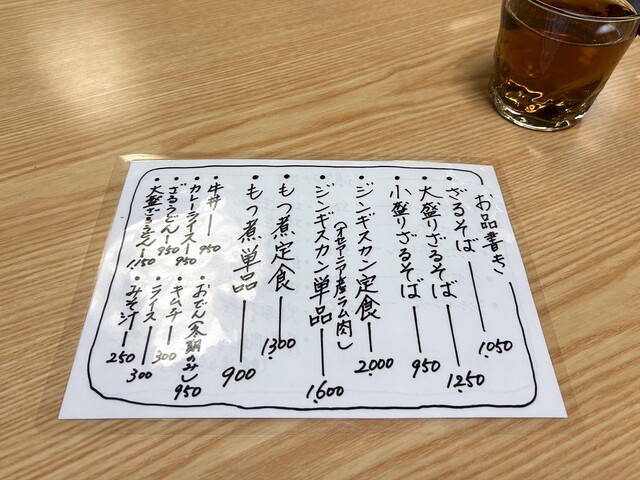 お品書き
・ざるそば―1,050
・大盛りざるそば―1,250
・小盛りざるそば―950
・ジンギスカン定食―2,000
(オセアニア産ラム肉)
・ジンギスカン単品―1,600
・もつ煮定食―1,300
・もつ煮単品―900
・牛丼―950
・カレーライス―950
・ざるうどん―950
・大盛ざるうどん―1,150
・おでん(冬期のみ)950
・キムチ―300
・ライス―300
・みそ汁―250